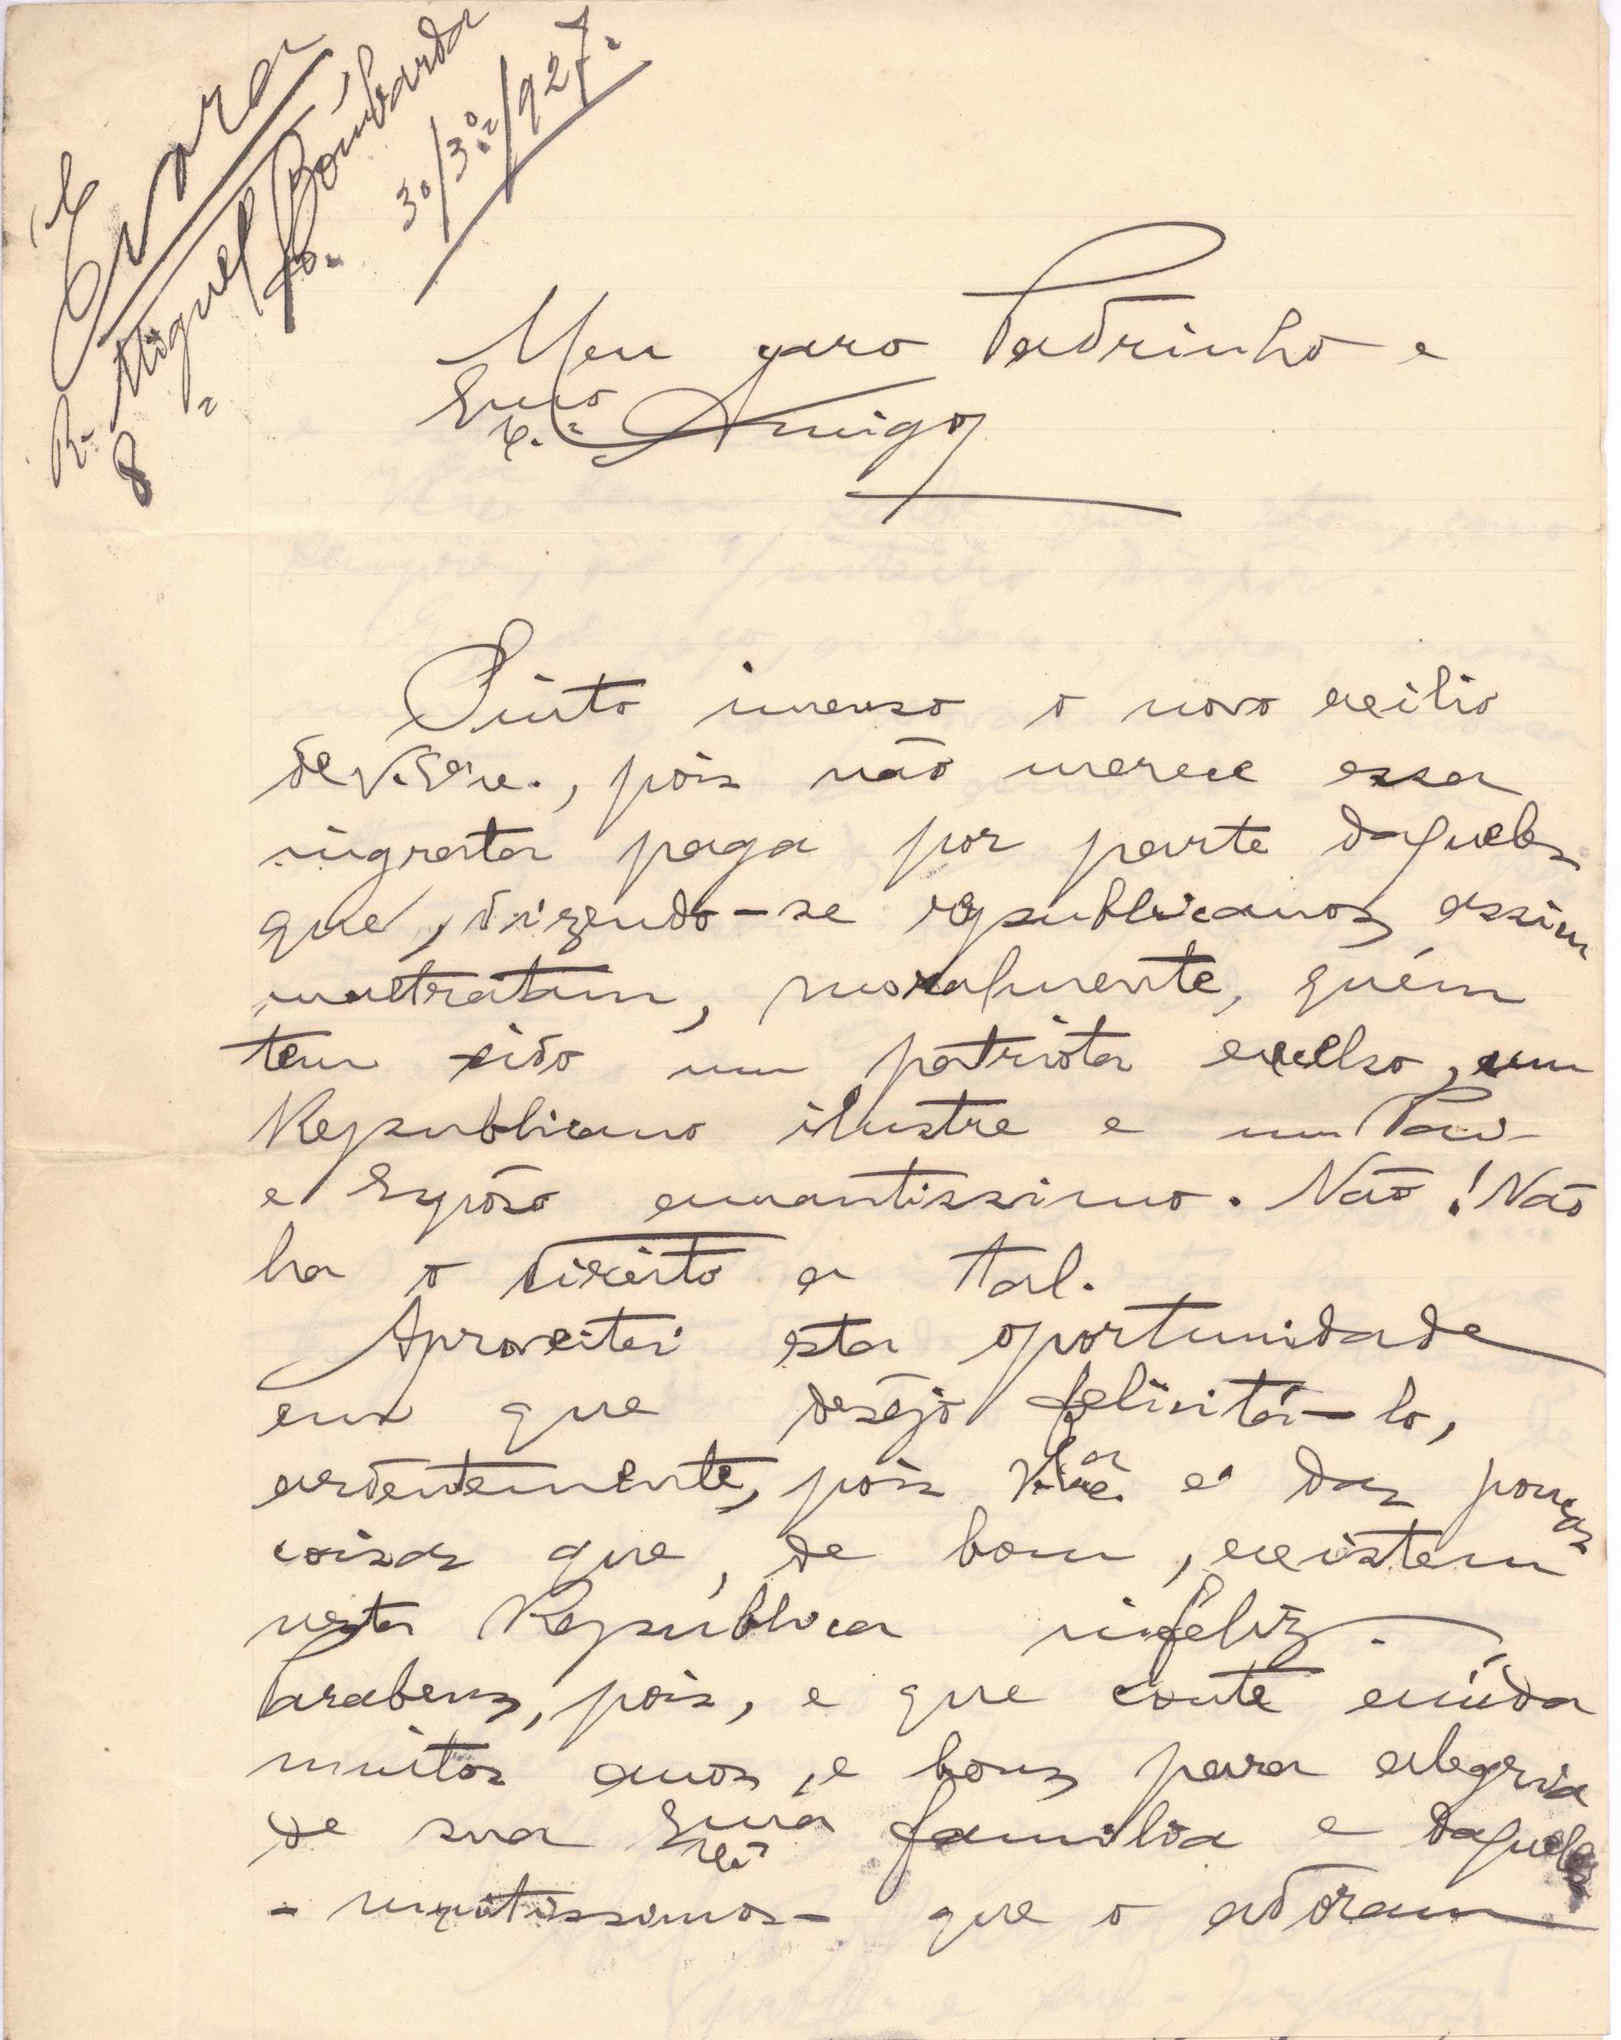 Evora
R. Miguel Bombarda
8
30/3º/927.
Meu caro Padrinho e
Exmo. Amigo
Sinto imenso o novo exilio
de V. Exª., pois não merece essa
ingrata paga por parte daqueles
que, dizendo-se republicanos, assim
maltratam, moralmente, quém
tem sido um patriota excelso, um
Republicano ilustre e um Pai
e Espôso amantissimo. Não! Não
ha o direito a tal.
Aproveitei esta oportunidade
em que desêjo felicitá-lo,
ardentemente, pois V. Exª. é das poucas
coisas que, de bom, existem
nesta República infeliz.
Parabens, pois, e que conte ainda
muitos anos, e bons para alegria
de sua Exmª família e daqueles
- muitissimos - que o adoram